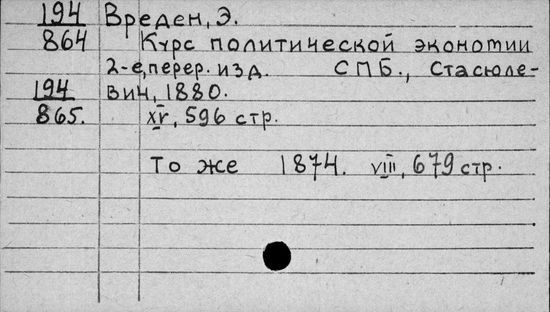 194 Вреден, Э.
864 Курс политической экономии
2-е, перер. изд. СПБ., Стасюле-
194 вич, 1880.
865. XV, 596 стр.
То же 1874. VIII, 679 стр.